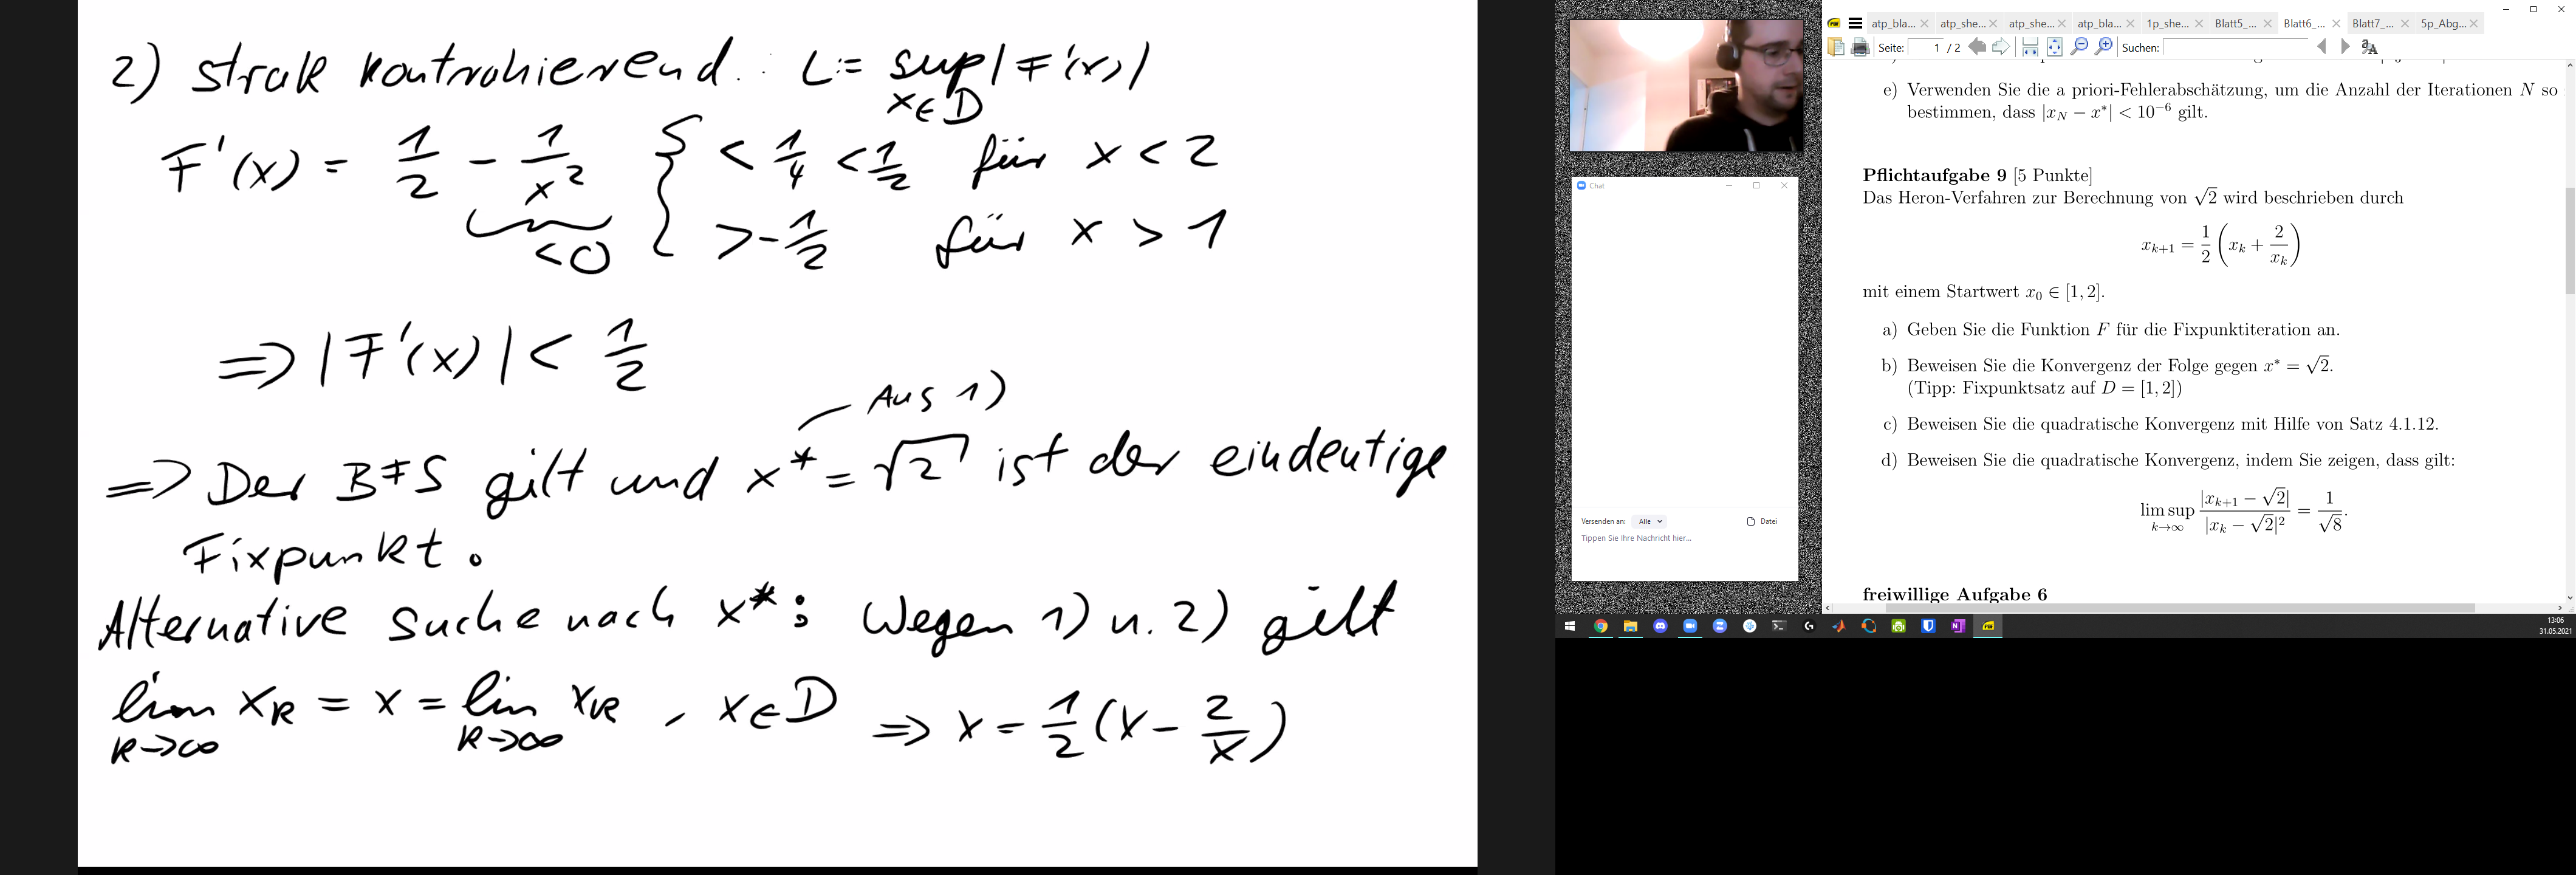 2) strak kontrahierend. L := sup |F'(x)|
x∈D
F'(x) = 1/2 - 1/x² { < 1/4 < 1/2 für x < 2
<0 > -1/2 für x > 1
⇒ |F'(x)| < 1/2
Aus 1)
⇒ Der BFS gilt und x* = √2 ist der eindeutige
Fixpunkt.
Alternative suche nach x*: Wegen 1) u. 2) gilt
lim x_k = x = lim x_k, x∈D ⇒ x = 1/2 (x - 2/x)
k→∞ k→∞
Chat
Versenden an: Alle Datei
Tippen Sie Ihre Nachricht hier...
atp_bla... atp_she... atp_she... atp_bla... 1p_she... Blatt5_... Blatt6_... Blatt7_... 5p_Abg...
Seite: 1 / 2 Suchen:
e) Verwenden Sie die a priori-Fehlerabschätzung, um die Anzahl der Iterationen N so
bestimmen, dass |x_N − x*| < 10⁻⁶ gilt.
Pflichtaufgabe 9 [5 Punkte]
Das Heron-Verfahren zur Berechnung von √2 wird beschrieben durch
x_{k+1} = 1/2 (x_k + 2/x_k)
mit einem Startwert x₀ ∈ [1, 2].
a) Geben Sie die Funktion F für die Fixpunktiteration an.
b) Beweisen Sie die Konvergenz der Folge gegen x* = √2.
(Tipp: Fixpunktsatz auf D = [1, 2])
c) Beweisen Sie die quadratische Konvergenz mit Hilfe von Satz 4.1.12.
d) Beweisen Sie die quadratische Konvergenz, indem Sie zeigen, dass gilt:
lim sup |x_{k+1} − √2| / |x_k − √2|² = 1/√8.
k→∞
freiwillige Aufgabe 6
13:06
31.05.2021